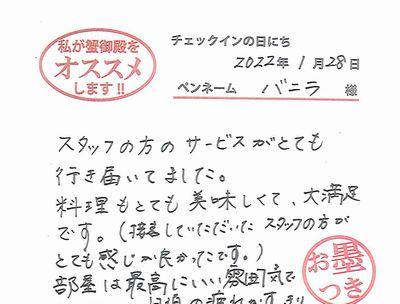 私が蟹御殿を
オススメ
します!!
チェックインの日にち
2022年 1月28日
ペンネーム バニラ 様
スタッフの方の サービスがとても
行き届いてました。
料理もとても 美味しくて、大満足
です。(接客していただいた スタッフの方が
とても感じが良かったです。)
部屋は最高にいい雰囲気で
日頃の疲れが
お墨
つき